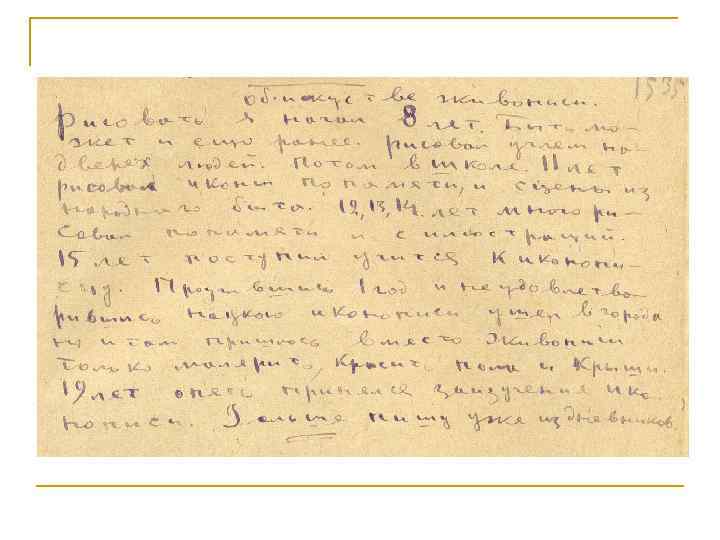 1535
об искустве живописи.
Рисовать я начал 8 лет. Быть мо-
жет и ещо ранее. рисовал углем на
дверех людей. потом в школе. 11 лет
рисовал иконы по памяти, и сцены из
народного быта. 12, 13, 14. лет много ри-
совал попамяти и с илюстраций.
15 лет поступил учится к иконопи-
сцу. Проучившись 1 год и неудовлетво-
рившись иконописи ушел в города
но и там пришлось вместо живописи
только малярить, красить пола и крыши.
19 лет опеть принелся заизучение ико-
нописи. Дальше пишу уже из дневников.